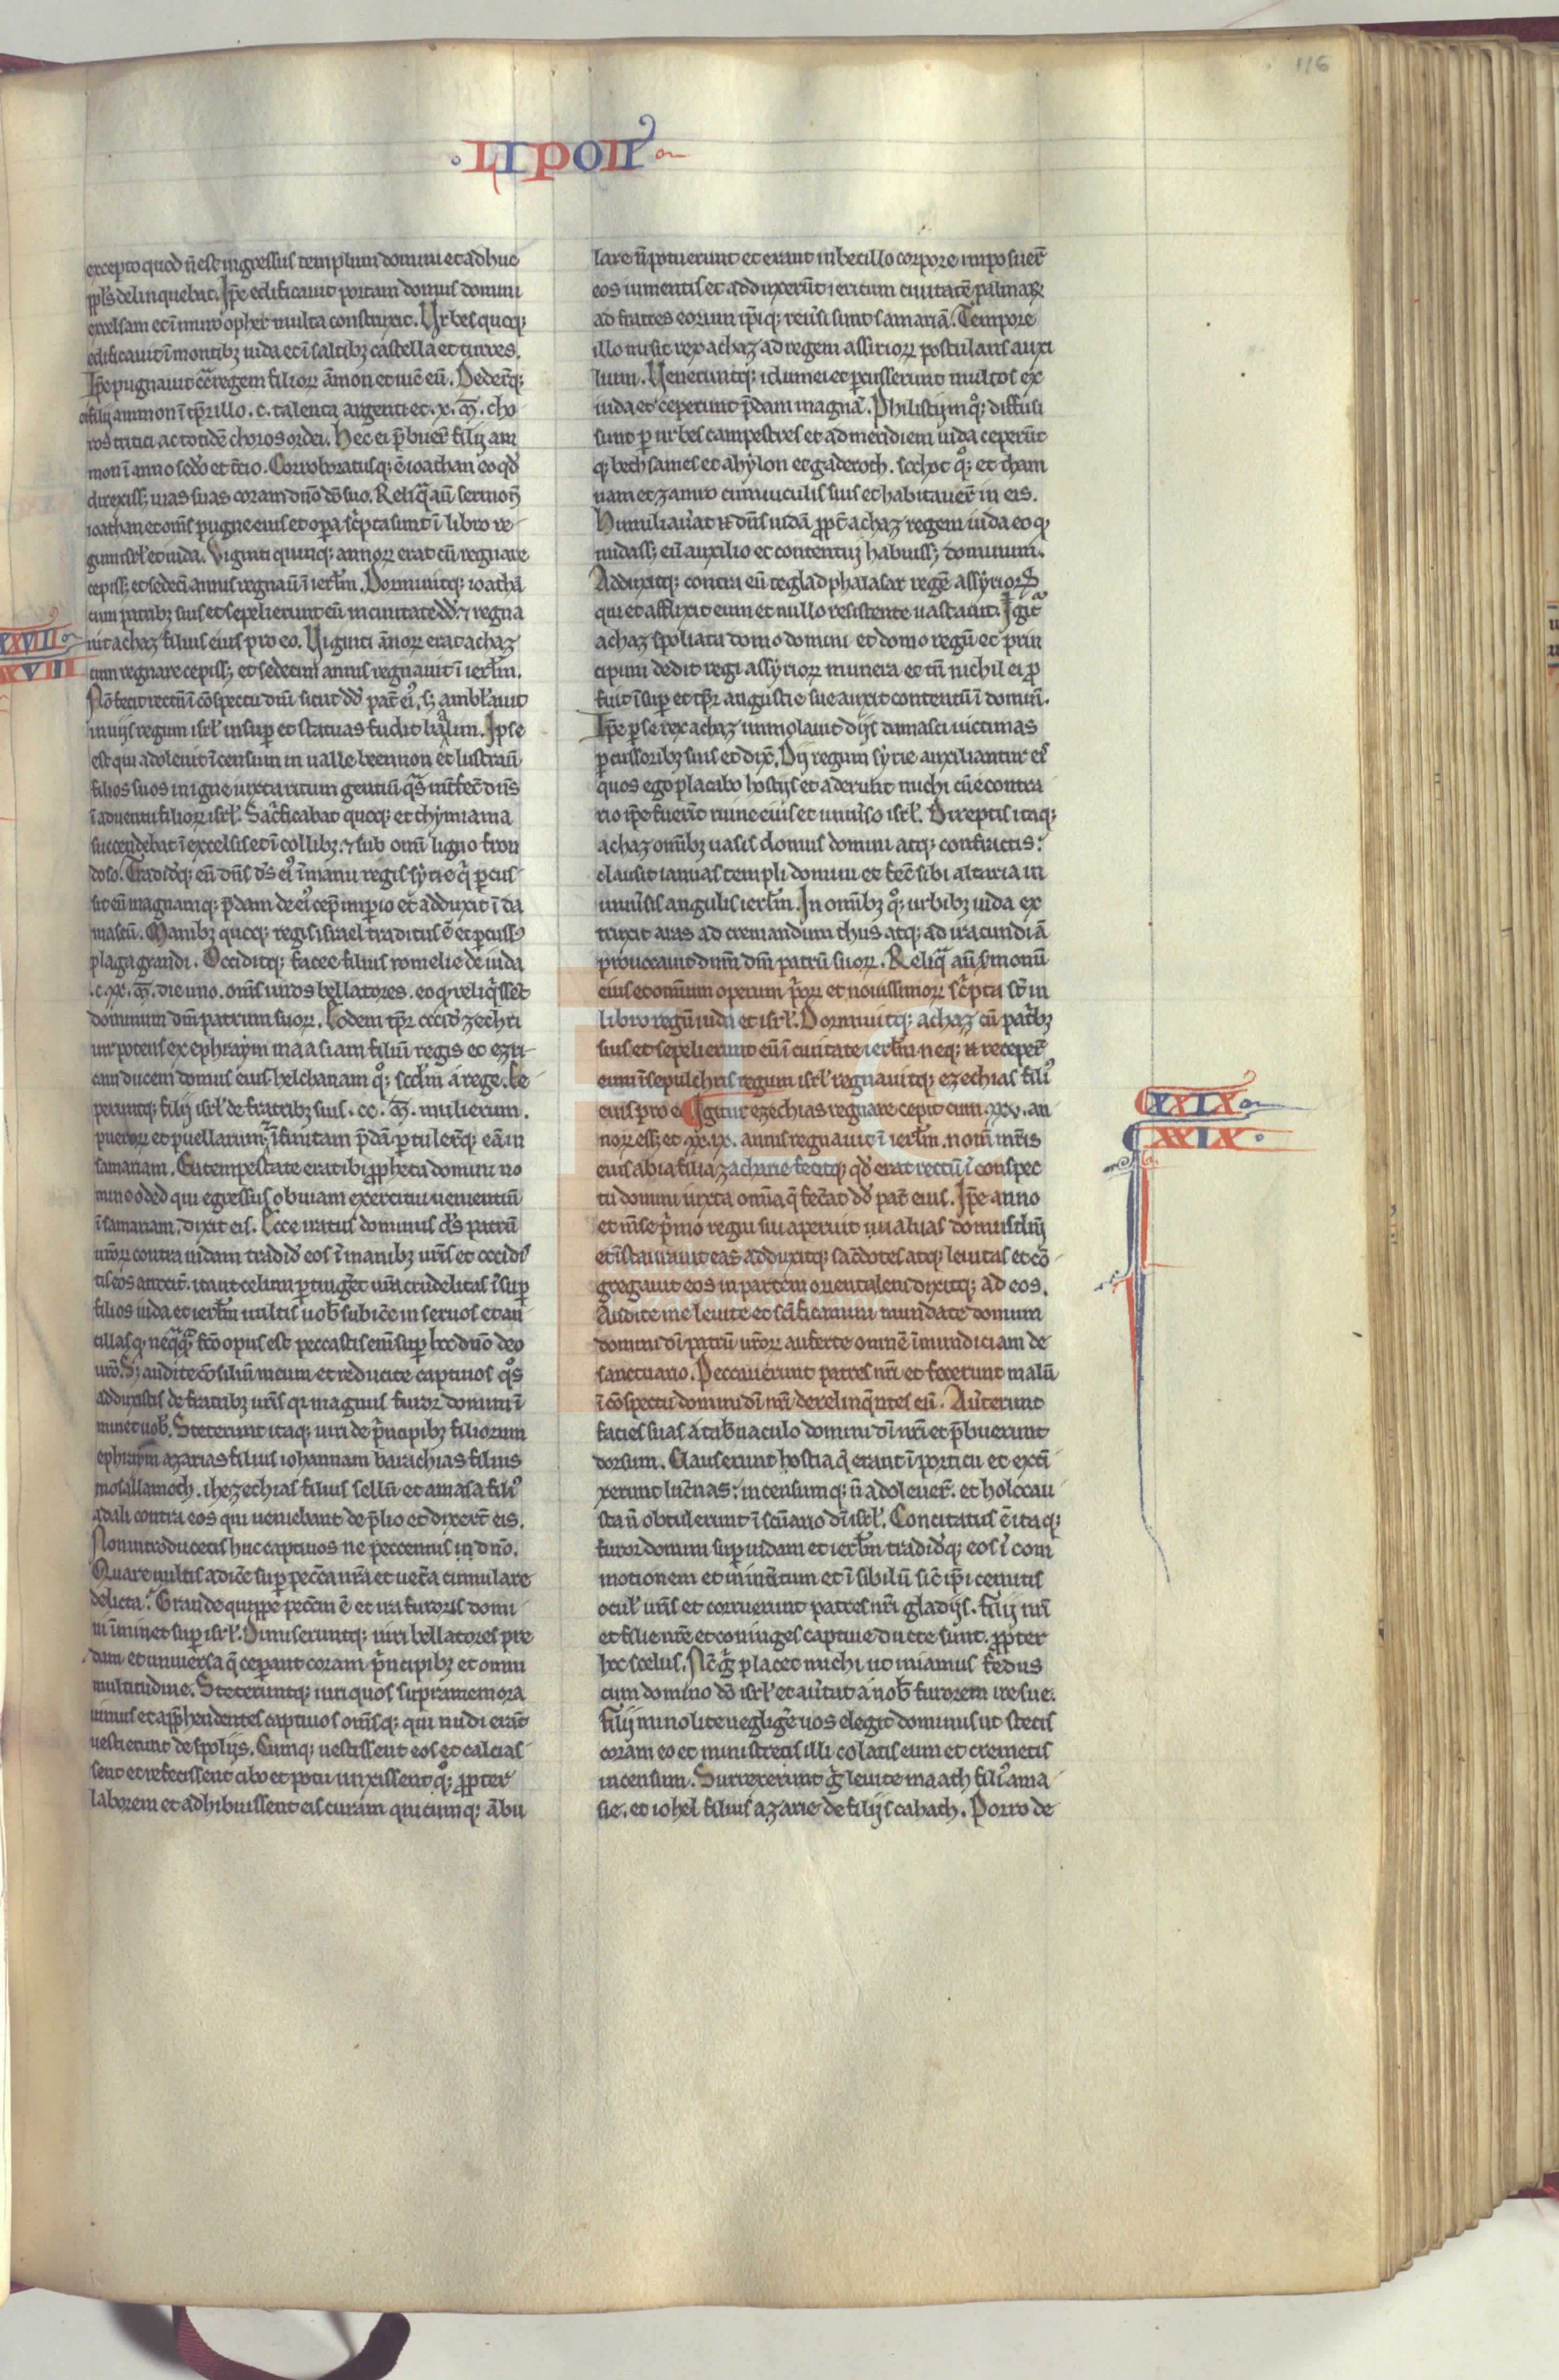 116
LIPOII
excepto quod ñ est ingressus templum domini et adhuc
ppl's delinquebat. Ip̃e edificauit portam domus domini
excelsam et ĩ muro opher multa construxit. Vrbes quoq;
edificauit ĩ montibz iuda et ĩ saltibz castella et turres.
Ip̃e pugnauit cͣ regem filioꝝ ãmon et uic̃ eũ. Dederũtq;
ei filij ammon ĩ tp̃r illo .c. talenta argenti et .x. ɱ̃. cho
ros tritici ac totidẽ choros ordei. Hec ei p̃buer̃ filij am
mon ĩ anno sc̃do et t̃cio. Corroboratusq; ẽ ioathan eo qd̃
direxiss; uias suas coram dño dõ suo. Reliqͣ aũ sermon̄
ioathan et om̃s pugne eius et opa sc̃pta sunt ĩ libro re
gum isrl' et iuda. Viginti quinq; annoꝝ erat cũ regnare
cepiss; et sedecĩ annis regnauĩ ĩ ierl'm. Dormiuitq; ioathã
cum patribz suis et sepelierunt eũ in ciuitate dd̃. ⁊ regna
XXVII
uit achaz filius eius pro eo. Viginti ãnoꝝ erat achaz
XXVIII
cum regnare cepiss; et sedecim annis regnauit ĩ ierl'm.
Nõ fecit rectũ ĩ cõspectu dñi sicut dd̃ pat̃ ei', s; ambl'auit
in uijs regum isrl' insuper et statuas fudit baalim. Ipse
est qui adoleuit ĩcensum in ualle beennon et lustrauĩ
filios suos in igne iuxta ritum gentiũ qͣs int̃fec̃ dñs
ĩ aduentu filioꝝ isrl'. Sac̃ficabat quoq; et thymiama
succendebat ĩ excelsis et ĩ collibz. ⁊ sub omĩ ligno fron
doso. Tradid'q; eũ dñs d's ei' ĩ manu regis syrie q̃ pcus
sit eũ magnamq; p̃dam de ei' cep̃ impio et adduxit ĩ da
mascũ. Manibz quoq; regis israel traditus ẽ et pcuss'
plaga grandi. Occiditq; facee filius romelie de iuda
.c.xx. ɱ̃. die uno. om̃s uiros bellatores. eo q reliq̃ssẽt
dominum dm̃ patrum suoꝝ. Eodem tp̃r occid' zechri
uir potens ex ephraym maasiam filiũ regis et ezri
cam ducem domus eius helchanam qͦ; sc̃d'm a rege. Ce
peruntq; filij isrl' de fratribz suis .cc. ɱ̃. mulierum.
pueroꝝ et puellarum. ⁊ ĩfinitam p̃dã. ptuler̃tq; eã in
samariam. Ea tempestate erat ibi ꝓpheta domini no
mine oded qui egressus obuiam exercitui uenientiũ
ĩ samariam, dixit eis. Ecce iratus dominus d's patrũ
ur̃oꝝ contra iudam tradid' eos ĩ manibz ur̃is et occidis
tis eos atrocit̃. ita ut celum ptinget̃ ur̃a crudelitas ĩsup
filios iuda et ierl'm uultis uob̃ subic̃e in seruos et an
cillas q; neq̃q̃ fc̃o opus est peccastis em̃ sup hoc dño deo
ur̃o. S; audite cõsiliũ meum et reducite captiuos qͦs
adduxistis de fratribz ur̃is q̃r magnus furor domini ĩ
minet uob̃. Steterunt itaq; uiri de p̃ncipibz filiorum
ephraym azarias filius iohannam barachias filius
mosallamoch. ihezechias filius sellũ et amasa fili'
adali contra eos qui ueniebant de p̃lio et dixer̃t eis.
Non introducetis huc captiuos ne peccemus in dño.
Quare uultis adic̃e sup pecc̃a nr̃a et uet̃a cumulare
delicta. Grande quippe pecc̃m ẽ et ira furoris domi
ni ĩminet sup isrl'. Dimiseruntq; uiri bellatores pre
dam et uniuersa q̃ ceperant coram p̃ncipibz et omni
multitudine. Steteruntq; uiri quos supra memora
uimus et app̃hendentes captiuos om̃sq; qui nudi erãt
uestierunt de spolijs. Cumq; uestissent eos et calcias
sent et refecissent cibo et potu unxissent qͦ; ꝓpter
laborem et adhibuissent eis curam quicumq; ãbu
lare ñ potuerunt et erant inbecillo corpore imposuer̃
eos iumentis et adduxerũt iericum ciuitatẽ palmaꝝ
ad fratres eorum ip̃iq; reũsi sunt samariã. Tempore
illo misit rex achaz ad regem assirioꝝ postulans auxi
lium. Veneruntq; idumei et pcusserunt multos ex
iuda et ceperunt p̃dam magnã. Philistijmq; diffusi
sunt p urbes campestres et ad meridiem iuda ceperũt
q; bethsames et ahylon et gaderoth. sochot qͦ; et tham
nam et zamro cum uiculis suis et habitauer̃ in eis.
Humiliaũat n̄ dñs iudã ꝓpt̃ achaz regem iuda eo q
nudass; eũ auxilio et contentui habuiss; dominum.
Adduxitq; contra eũ teglad phalasar regẽ assyrioꝝ
qui et afflixit eum et nullo resistente uastauit. Igit̃
achaz spoliata domo domini et domo regũ et prin
cipum dedit regi assyrioꝝ munera et tñ nichil ei p
fuit ĩsup et tp̃r angustie sue auxit contentũ ĩ dominũ.
Ip̃e p se rex achaz immolauit dijs damasci uictimas
pcussoribz suis et dix̃. Dij regum syrie auxiliantur eis
quos ego placabo hostijs et aderunt michi cũ econtra
rio ip̃e fuer̃t ruine eius et uniũso isrl'. Direptis itaq;
achaz omĩbz uasis domus domini atq; confractis:
clausit ianuas templi domini et fec̃ sibi altaria in
uniũsis angulis ierl'm. In omĩbz qͦ; urbibz iuda ex
truxit aras ad cremandum thus atq; ad iracundiã
prouocauit dñm dm̃ patrũ suoꝝ. Reliqͣ aũ smonũ
eius et omnium operum p̃oꝝ et nouissimoꝝ sc̃pta st̃ in
libro regũ iuda et isrl'. Dormiuitq; achaz cũ pat̃bz
suis et sepelierunt eũ ĩ ciuitate ierl'm neq; n̄ receper̃
eum ĩ sepulchris regum isrl' regnauitq; ezechias fili'
XXIX
eius pro eo Igitur ezechias regnare cepit cum .xxv. an
XXIX
noꝝ ess; et .xx.ix. annis regnauit ĩ ierl'm. nom̃ mr̃is
eius abia filia zacharie fecitq; qd̃ erat rectũ ĩ conspec
tu domini iuxta omĩa q̃ fec̃at dd̃ pat̃ eius. Ip̃e anno
et m̃se p̃mo regni sui aperuit ualuas domus dñi
et ĩstaurauit eas adduxitq; sac̃dotes atq; leuitas et cõ
gregauit eos in partem orientalem dixitq; ad eos.
Audite me leuite et sc̃ificamini mundate domum
domini dĩ patrũ ur̃oꝝ auferte omnẽ ĩmundiciam de
sanctuario. Peccauerunt patres nr̃i et fecerunt malũ
ĩ cõspectu domini dĩ nr̃i derelinq̃ntes eũ. Aũterunt
facies suas a tab̃naculo domini dĩ nr̃i et p̃buerunt
dorsum. Clauserunt hostia q̃ erant ĩ porticu et extĩ
xerunt luc̃nas: incensumq; ñ adoleuer̃. et holocau
sta ñ obtulerunt ĩ sc̃uario dĩ isrl'. Concitatus ẽ itaq;
furor domini sup iudam et ierl'm tradid'q; eos ĩ com
motionem et in int̃itum et ĩ sibilũ sic̃ ip̃i cernitis
ocul' ur̃is et corruerunt patres nr̃i gladijs. filij nr̃i
et filie nr̃e et coniuges captiue ducte sunt. ꝓpter
hoc scelus. Nc̃ g̃ placet michi ut iniamus fedus
cum domino dõ isrl' et aũtat a nob̃ furorem ire sue.
Filij mi nolite neglig̃e uos elegit dominus ut stetis
coram eo et ministretis illi colatis eum et cremetis
incensum. Surrexerunt g̃ leuite maath fili' ama
sie. et iohel filius azarie de filijs cahath. Porro de